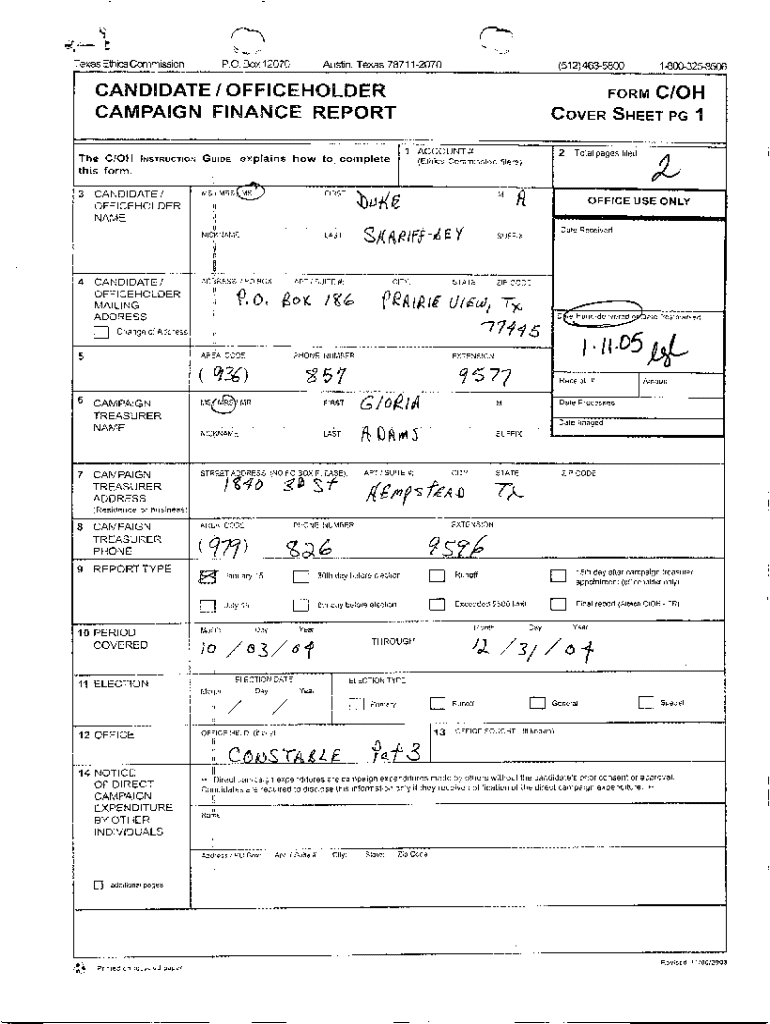 Texas Ethics Commission P.O. Box 12070 Austin, Texas 78711-2070 (512) 463-5800 1-800-325-8506
CANDIDATE / OFFICEHOLDER
CAMPAIGN FINANCE REPORT
FORM C/OH
COVER SHEET PG 1
The C/OH INSTRUCTION GUIDE explains how to complete this form.
1 ACCOUNT #
(Ethics Commission filers)
2 Total pages filed
2
3 CANDIDATE / OFFICEHOLDER NAME
MS / MRS / MR FIRST MI
DUKE A
NICKNAME LAST SUFFIX
SHARIFF-BEY
OFFICE USE ONLY
Date Received
4 CANDIDATE / OFFICEHOLDER MAILING ADDRESS
Change of Address
ADDRESS / PO BOX APT / SUITE #: CITY: STATE ZIP CODE
P.O. BOX 186 PRAIRIE VIEW, TX
77445
Date Hand-delivered or Date Postmarked
1-11-05
5
AREA CODE PHONE NUMBER EXTENSION
(936) 857 9577
Receipt # Amount
6 CAMPAIGN TREASURER NAME
MS / MRS / MR FIRST MI
GLORIA
NICKNAME LAST SUFFIX
ADAMS
Date Processed
Date Imaged
7 CAMPAIGN TREASURER ADDRESS
(Residence or business)
STREET ADDRESS (NO PO BOX PLEASE): APT / SUITE #: CITY STATE ZIP CODE
1840 3RD St HEMPSTEAD TX
8 CAMPAIGN TREASURER PHONE
AREA CODE PHONE NUMBER EXTENSION
(979) 826 9596
9 REPORT TYPE
January 15 30th day before election Runoff 15th day after campaign treasurer appointment (officeholder only)
July 15 8th day before election Exceeded $500 limit Final report (Attach C/OH - FR)
10 PERIOD COVERED
Month Day Year Month Day Year
10 / 03 / 04 THROUGH 12 / 31 / 04
11 ELECTION
ELECTION DATE ELECTION TYPE
Month Day Year
/ / Primary Runoff General Special
12 OFFICE
OFFICE HELD (if any)
CONSTABLE Pct 3
13 OFFICE SOUGHT (if known)
14 NOTICE OF DIRECT CAMPAIGN EXPENDITURE BY OTHER INDIVIDUALS
additional pages
** Direct campaign expenditures are campaign expenditures made by others without the candidate's prior consent or approval.
Candidates are required to disclose this information only if they receive notification of the direct campaign expenditure. **
Name
Address / PO Box: Apt. / Suite #: City: State: Zip Code
Printed on recycled paper
Revised 11/06/2003